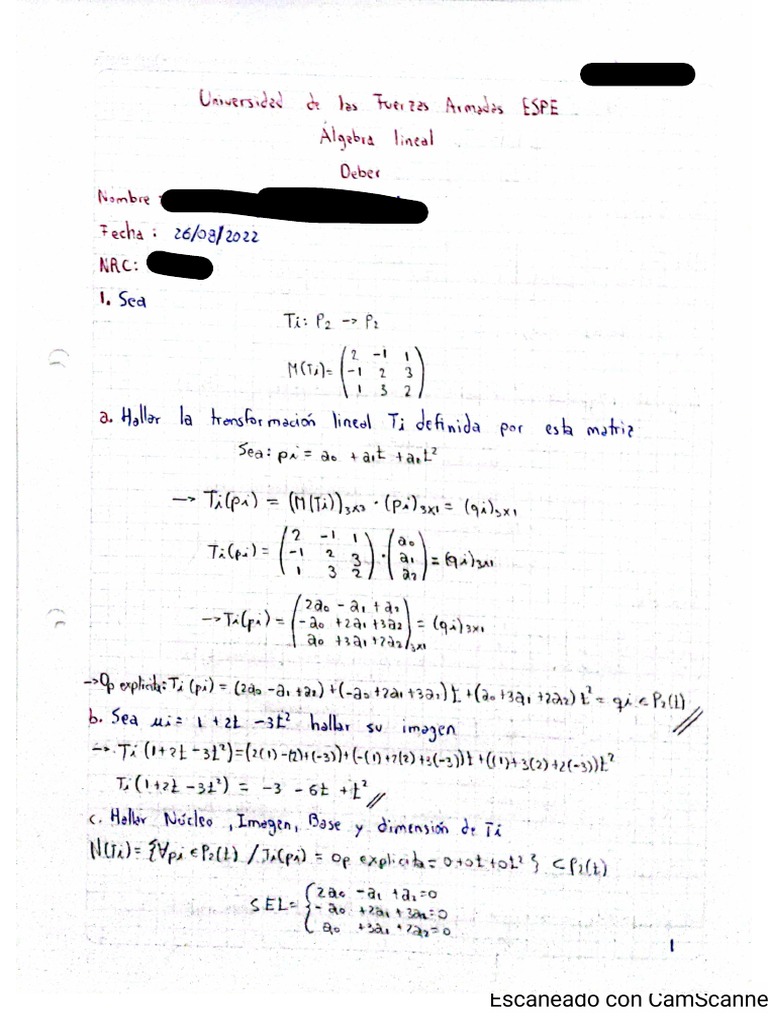 Universidad de las Fuerzas Armadas ESPE
Álgebra lineal
Deber
Nombre
Fecha : 26/08/2022
NRC:
1. Sea
Ti: P2 -> P2
M(Ti)= (2 -1 1
-1 2 3
1 3 2)
a. Hallar la transformación lineal Ti definida por esta matriz
Sea: pi = a0 + a1t + a2t²
-> Ti(pi) = (M(Ti))3x3 · (pi)3x1 = (qi)3x1
Ti(pi) = (2 -1 1
-1 2 3
1 3 2) · (a0
a1
a2) = (qi)3x1
-> Ti(pi) = (2a0 - a1 + a2
-a0 + 2a1 + 3a2
a0 + 3a1 + 2a2)3x1 = (qi)3x1
-> Op explicita: Ti (pi) = (2a0 - a1 + a2) + (-a0 + 2a1 + 3a2) t + (a0 + 3a1 + 2a2) t² = qi ∈ P2(t) //
b. Sea ui = 1 + 2t - 3t² hallar su imagen
-> Ti (1+2t - 3t²) = (2(1) - (2) + (-3)) + (-(1) + 2(2) + 3(-3))t + ((1) + 3(2) + 2(-3))t²
Ti (1+2t - 3t²) = -3 - 6t + t² //
c. Hallar Núcleo , Imagen, Base y dimensión de Ti
N(Ti) = {∀pi ∈ P2(t) / Ti(pi) = Op explicita = 0+0t+0t² } ⊂ P2(t)
SEL = {2a0 - a1 + a2 = 0
- a0 + 2a1 + 3a2 = 0
a0 + 3a1 + 2a2 = 0
1
Escaneado con CamScanne